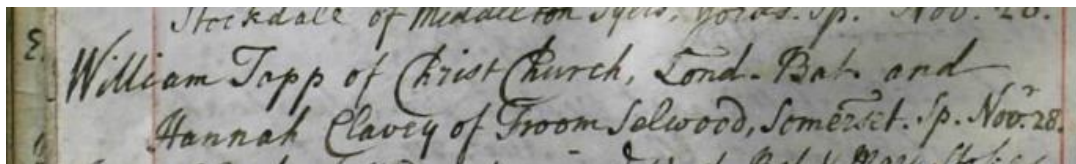 Stockdale of Middleton Tyers, Yorks. Sp. Nov. 20.
E.
William Tapp of Christ Church, Lond. Bat. and
Hannah Clavey of Froom Selwood, Somerset. Sp. Novr. 28.